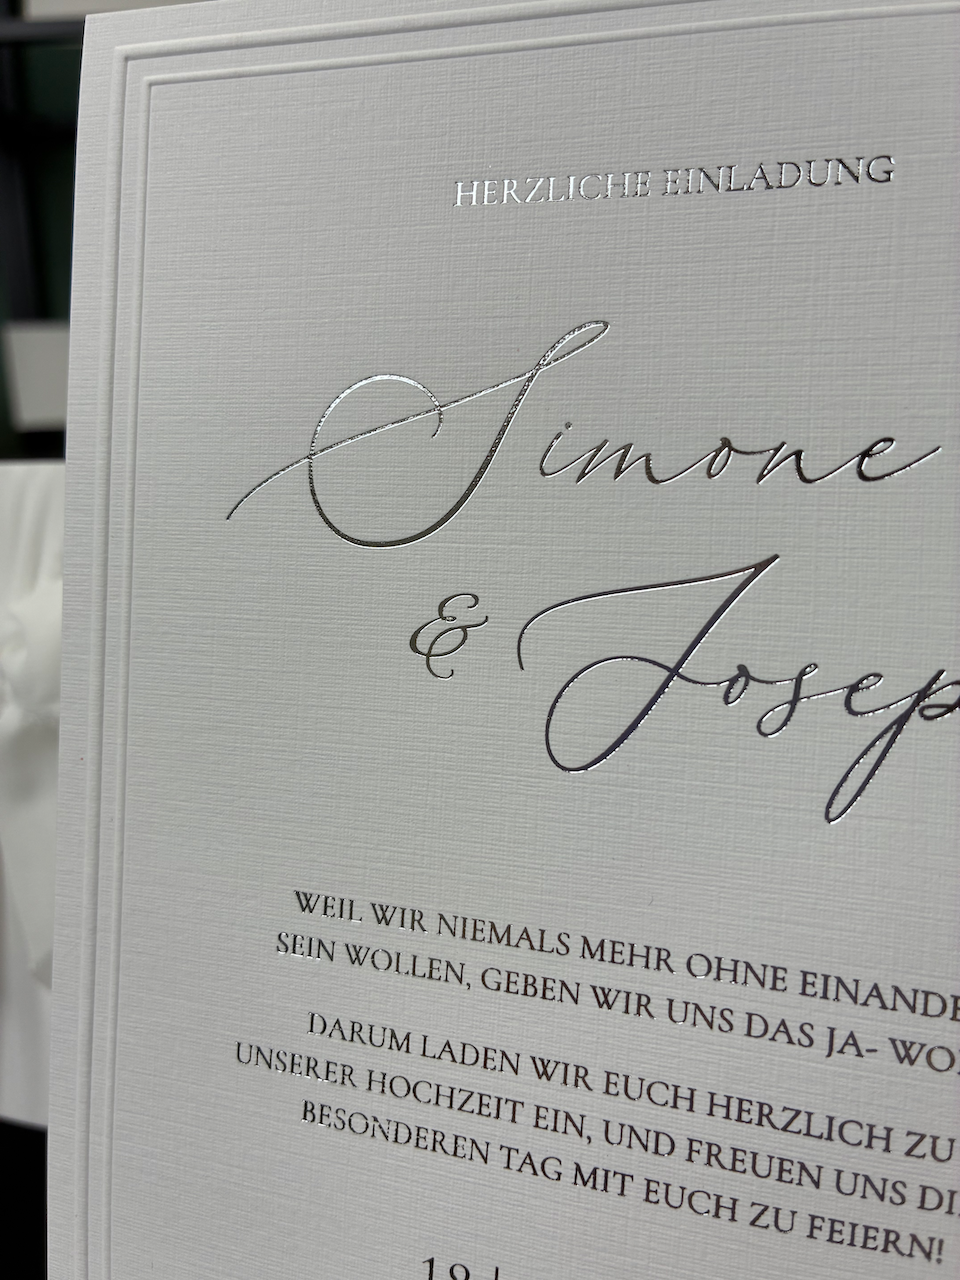 HERZLICHE EINLADUNG
Simone
& Josep
WEIL WIR NIEMALS MEHR OHNE EINANDE
SEIN WOLLEN, GEBEN WIR UNS DAS JA- WO
DARUM LADEN WIR EUCH HERZLICH ZU
UNSERER HOCHZEIT EIN, UND FREUEN UNS DI
BESONDEREN TAG MIT EUCH ZU FEIERN!